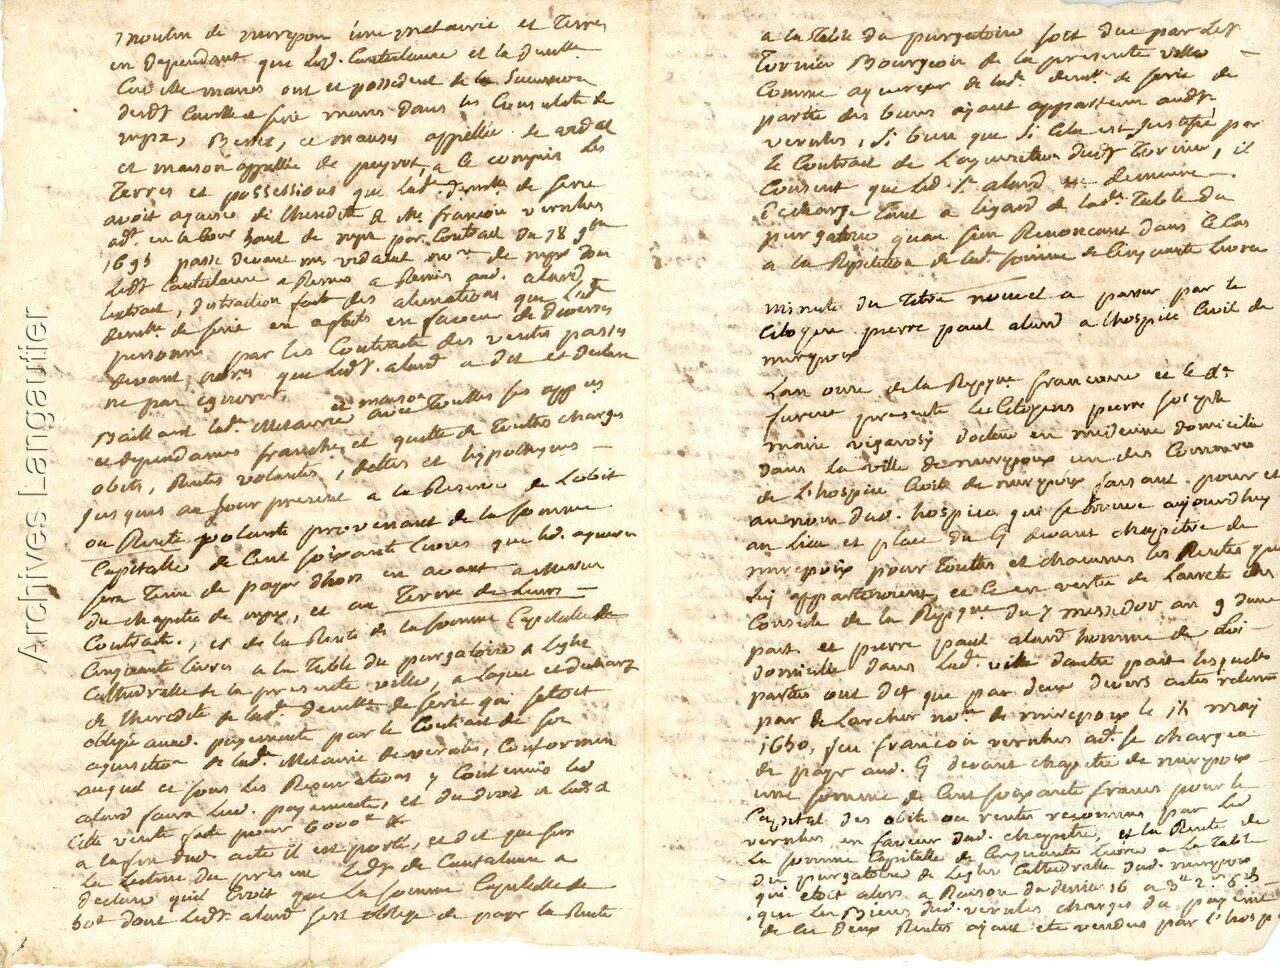 moulin de mirepoix une metairie et Terres
en dependant que led. Cantalause et la demlle
mariés ont et possedent de la Succession
Serie mariés dans les Consulats de
mrpx, Besset, ce mauses appellée de vidal
et maison appellée de peyrot, a ce compris les
Terres et possessions que lade demlle de Serie
avoit aquise de lheredité de Me françois vernhes
adt. en la Cour de mrpx par Contrat du 18 9bre
1695 passé devant me vidalat nore. de mrpx dont
Ledt Cantalause a Remis a Remis aud. alard
lextrait, distraction fait des alienations que lade
demlle de Serie en a faits en faveur de diverses
personnes par les Contrats des ventes passés
devant nores que Ledt. alard a dit et declaré
ne pas ignorer,
et maison
Baillant lade. Metairie avec Toutes ses appces
et dependances franche et quitte de Toutes charges
obits, Rentes volantes, dettes et hypotheques
jusques au Jour present a la Reserve de Lobit
ou Rente volante provenant de la somme
Capitalle de Cent soixante livres que led. aquereur
sera Tenu de payer dhors en avant a Messieurs
du chapitre de mrpx, et au Terme de Leurs
Contrats, et de la Rente de la somme Capitalle de
Cinquante livres a la Table du purgatoire de leglise
Cathedralle de la presente ville, a laquelle
de lheredité de lade. demlle de Serie qui setoit
obligé aud. payement par le Contrat de son
aquisition de lade. Metairie de vernhes, Conformement
auquel et sous les Reservations y Contenues led
alard faira led. payement, et du droit de lods
Cette vente faite pour 6000tt
a la fin dud. acte il est porté, et dit que sur
la Lecture du present Ledt. de Cantalause a
declaré quil Croit que la somme Capitalle de
50tt dont Ledt. alard sest obligé de payer la Rente
a la Table du purgatoire soit due par Ledt
Tornier Bourgeois de la presente ville
Comme aquereur de lade. demlle. de Serie de
partie des biens ayant appartenu audt
vernhes, Si bien que Si Cela est Justifié par
le Contrat de Laquisition dudt Tornier, il
Consent que led. Sr. alard en demeure
dechargé Tant a legard de lade. Table du
purgatoire quau sien Renonçant dans le Cas
a la Repetition de lad. somme de Cinquante livres
Minute du Titre nouvel a passer par le
Citoyen pierre paul alard a lhospice Civil de
mirepoix
Lan onze de la Repque. francoise et le dt
furent presents les Citoyens pierre Joseph
marie vigarosy docteur en medecine domicilié
dans la ville de mirepoix un des Commres
de L'hospice Civil de mirepoix faisant pour et
au nom dud. hospice qui se trouve aujourdhuy
au Lieu et place du Cy devant chapitre de
mirepoix pour Toutes et chacunes les Rentes qui
Luy appartenoient et ce en vertu de Larreté des
Consuls de la Repque. du 7 messidor an 9 dune
part. et pierre paul alard homme de Loi
domicilié dans lade. ville dautre part lesquelles
parties ont dit que par deux divers actes retenus
par de Larcher nore. de mirepoix le 14 may
1650, feu françois vernhes adt. se chargea
de payer aud. Cy devant chapitre de mirepoix
une somme de Cent soixante francs pour le
Capital des obits ou rentes reconnus par led
vernhes en faveur dud. chapitre, et la Rente de
la somme Capitalle de Cinquante livres a la Table
du purgatoire de Leglise Cathedralle dud. mirepoix
qui etoit alors a Raison du denier 16 a 3tt 2s 6d
que les Biens dud. vernhes chargés du payement
de les deux Rentes ayant eté vendus par